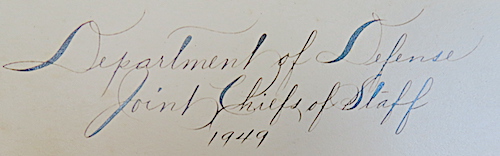 Department of Defense
Joint Chiefs of Staff
1949